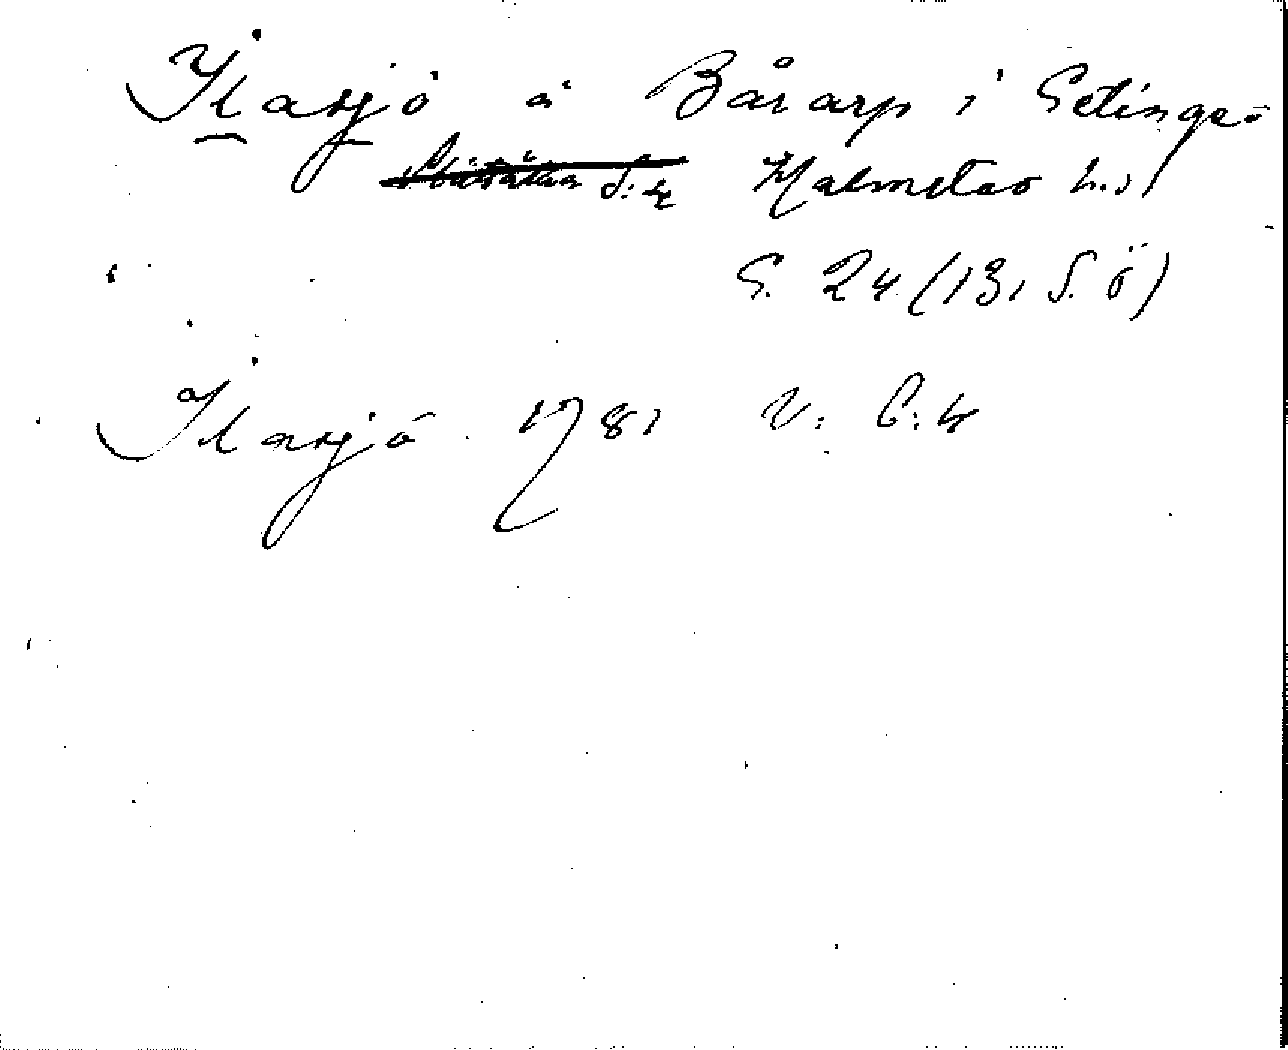 Ilasjö å Bårarp i Getinge-
Halmstad h.s
G. 24 (131 S. ö)
Ilasjö 1781 V: C:4